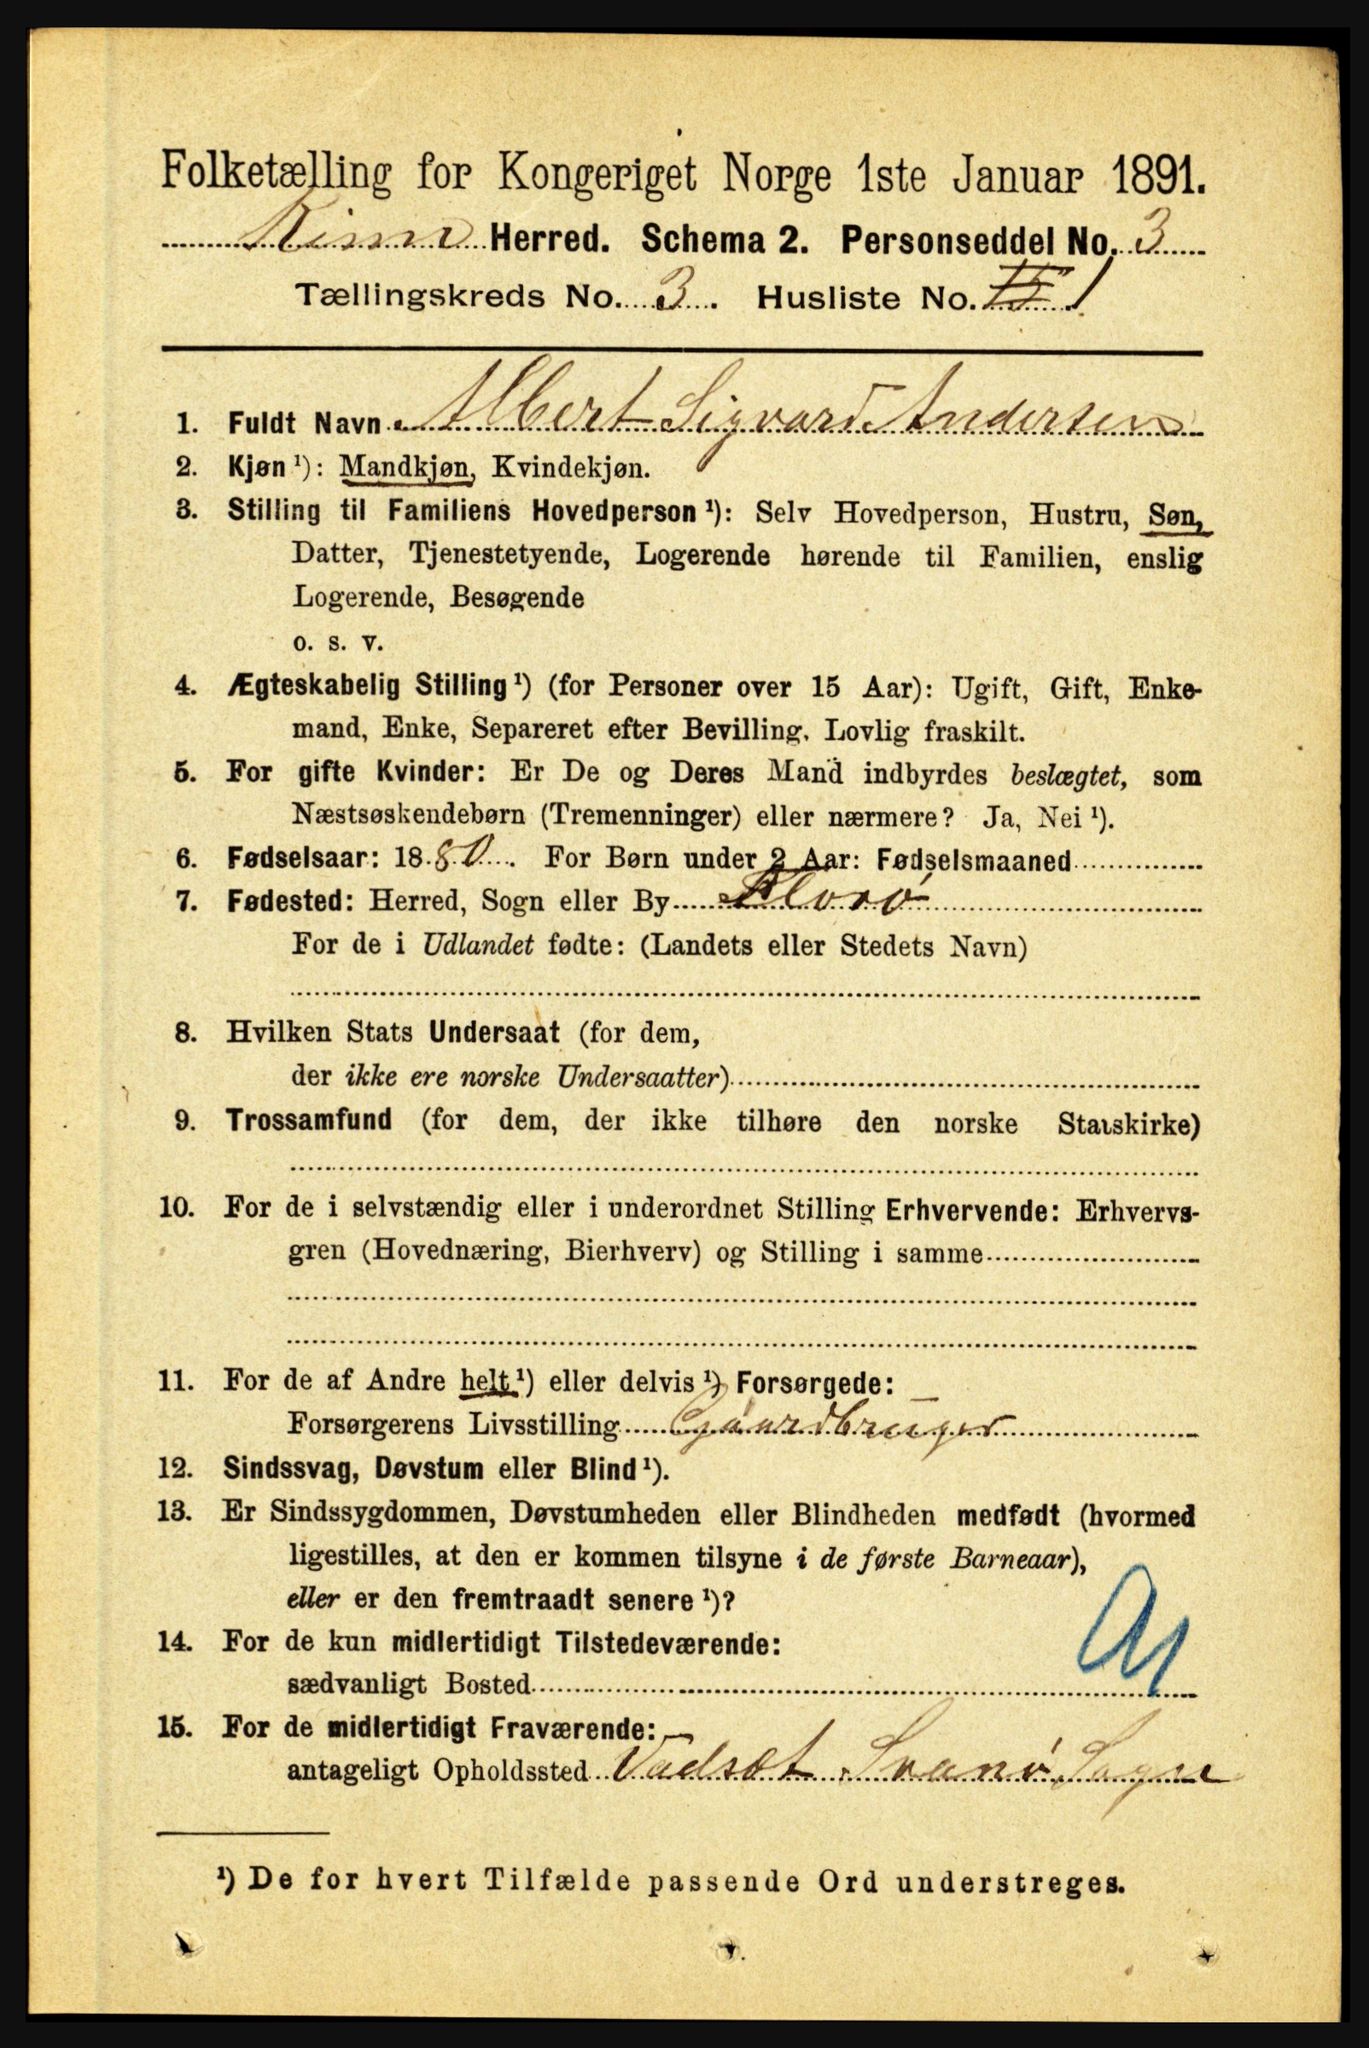 Folketælling for Kongeriget Norge 1ste Januar 1891.
Kinn Herred. Schema 2. Personseddel No. 3
Tællingskreds No. 3. Husliste No. 1
1. Fuldt Navn Albert Sigvard Andersen
2. Kjøn ¹): Mandkjøn, Kvindekjøn.
3. Stilling til Familiens Hovedperson ¹): Selv Hovedperson, Hustru, Søn,
Datter, Tjenestetyende, Logerende hørende til Familien, enslig
Logerende, Besøgende
o. s. v.
4. Ægteskabelig Stilling ¹) (for Personer over 15 Aar): Ugift, Gift, Enke-
mand, Enke, Separeret efter Bevilling. Lovlig fraskilt.
5. For gifte Kvinder: Er De og Deres Mand indbyrdes beslægtet, som
Næstsøskendebørn (Tremenninger) eller nærmere? Ja, Nei ¹).
6. Fødselsaar: 1880. For Børn under 2 Aar: Fødselsmaaned
7. Fødested: Herred, Sogn eller By Florø
For de i Udlandet fødte: (Landets eller Stedets Navn)
8. Hvilken Stats Undersaat (for dem,
der ikke ere norske Undersaatter)
9. Trossamfund (for dem, der ikke tilhøre den norske Statskirke)
10. For de i selvstændig eller i underordnet Stilling Erhvervende: Erhvervs-
gren (Hovednæring, Bierhverv) og Stilling i samme
11. For de af Andre helt ¹) eller delvis ¹) Forsørgede:
Forsørgerens Livsstilling Gaardbruger
12. Sindssvag, Døvstum eller Blind ¹).
13. Er Sindssygdommen, Døvstumheden eller Blindheden medfødt (hvormed
ligestilles, at den er kommen tilsyne i de første Barneaar),
eller er den fremtraadt senere ¹)?
14. For de kun midlertidigt Tilstedeværende:
sædvanligt Bosted
15. For de midlertidigt Fraværende:
antageligt Opholdssted Vadset Svanø Sogn
¹) De for hvert Tilfælde passende Ord understreges.